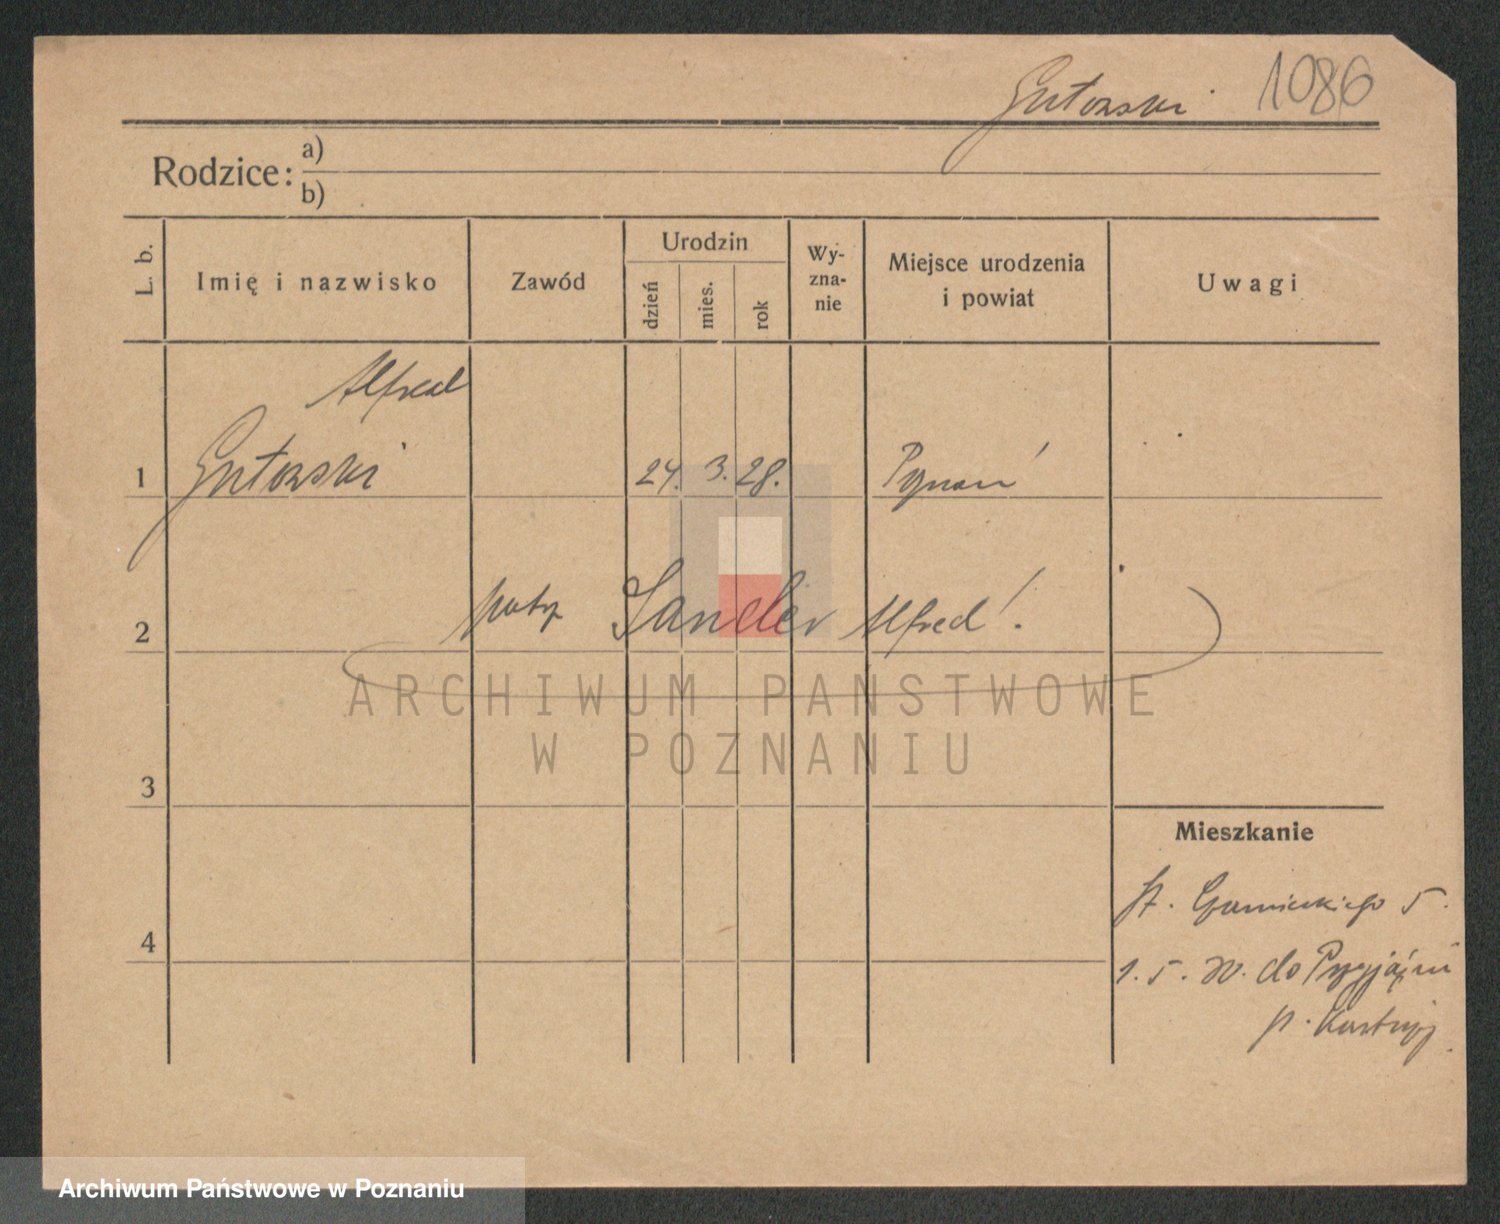 Gutowski 1086
Rodzice: a)
b)
L. b. Imię i nazwisko Zawód Urodzin dzień mies. rok Wy-zna-nie Miejsce urodzenia i powiat Uwagi
Alfred
1 Gutowski 24. 3. 28. Poznań
2 patrz Sandler Alfred!
3
Mieszkanie
5.
4
1. 5. 30. do
p.
ARCHIWUM PAŃSTWOWE
W POZNANIU
Archiwum Państwowe w Poznaniu